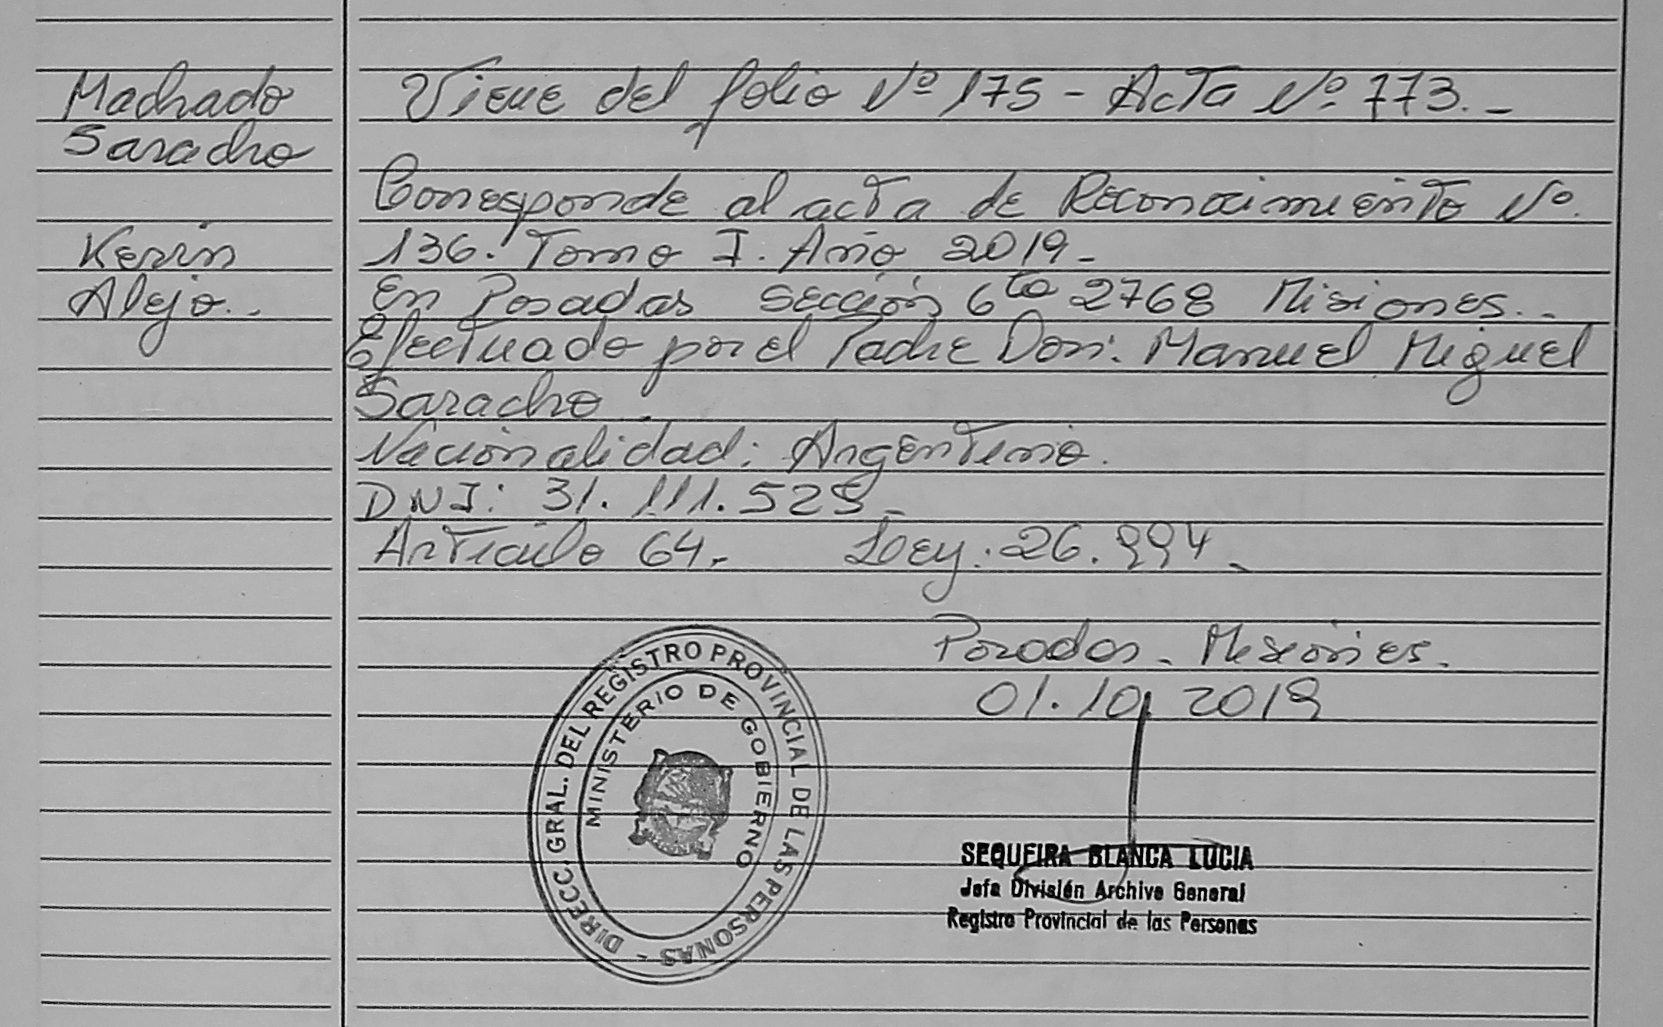 Machado
Saracho
Kevin
Alejo.-
Viene del folio Nº 175 - Acta Nº 773.-
Corresponde al acta de Reconocimiento Nº.
136. Tomo I. Año 2019-
En Posadas sección 6ta 2768 Misiones..-
Efectuado por el Padre Don: Manuel Miguel
Saracho.
Nacionalidad: Argentino.
DNI: 31.111.525-
Articulo 64.- Ley. 26.994.-
Posadas - Misiones.
01.10.2019
DIRECC. GRAL. DEL REGISTRO PROVINCIAL DE LAS PERSONAS -
MINISTERIO DE GOBIERNO
SEQUEIRA BLANCA LUCIA
Jefa División Archivo General
Registro Provincial de las Personas